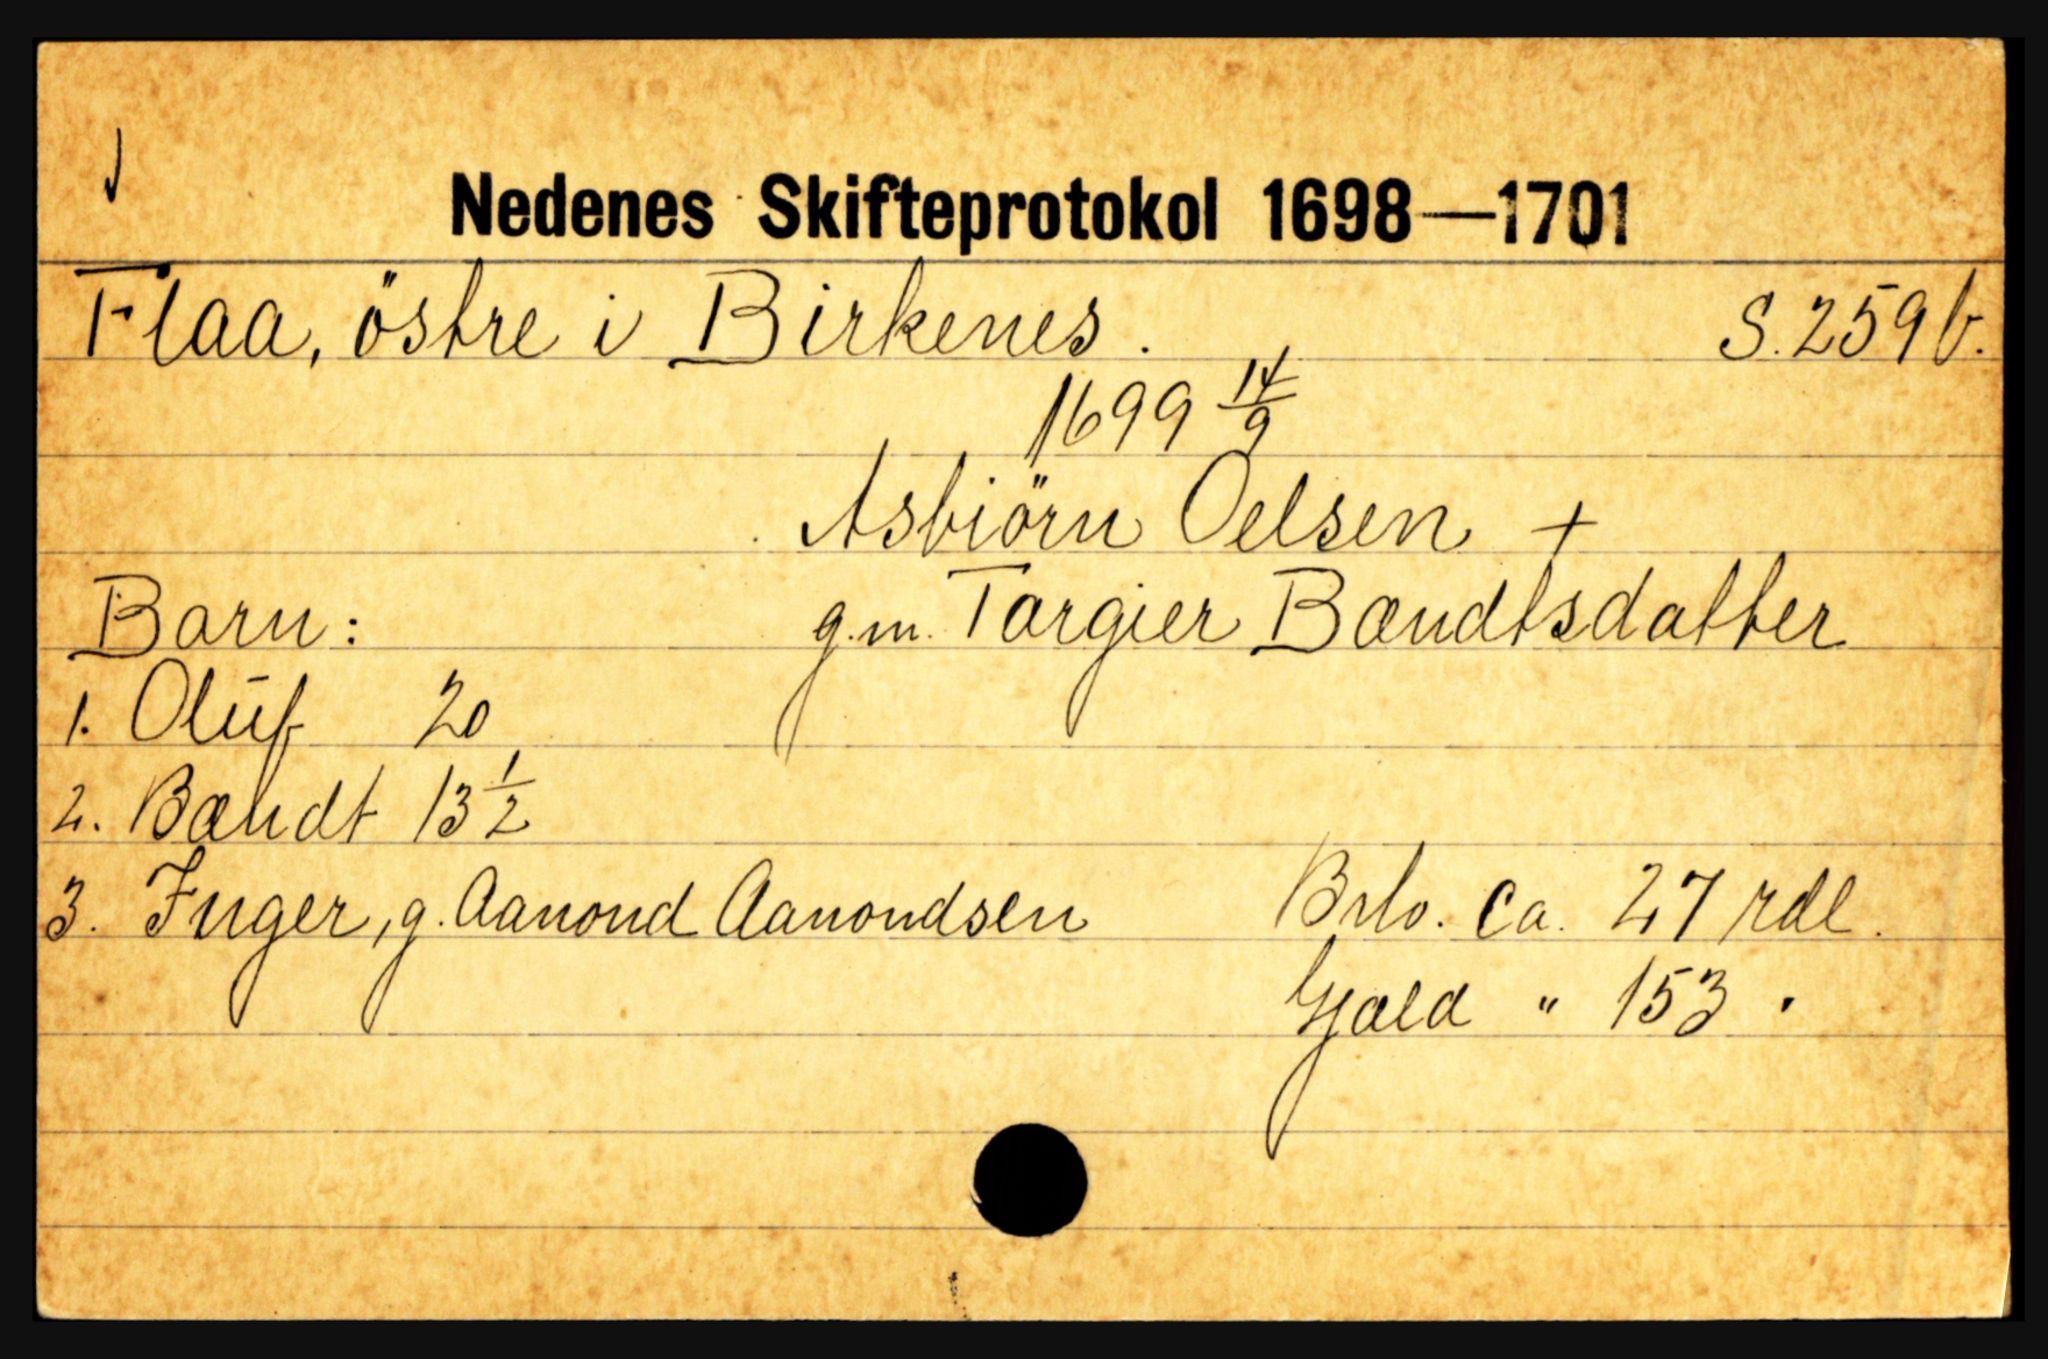 Nedenes Skifteprotokol 1698—1701
Flaa, östre i Birkenes. S. 259 b.
1699 14/9
Asbiörn Oelsen +
Barn: g.m. Targier Bændtsdatter
1. Olŭf 20
2. Bændt 13 1/2
3. Inger, g. Aanond Aanondsen Brto. ca. 27 rdl.
Gjæld " 153 "